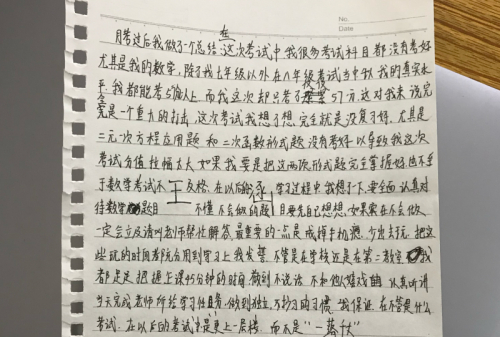 No.
Date
月考过后我做了一个总结,在这次考试中我很多考试科目都没有考好
尤其是我的数学,除了我七年级以外在八年级考试当中以我的真实水
平,我都能考 以上而我这次却只考了 57方,这对我来说完
完全是一个重大的打击,这次考试我想了想完全就是没复习好,尤其是
二元一次方程应用题和二次函数形式题没有考好以导致我这次
考试分值 幅 大如果我要是把这两次形式题完全掌握好也不至
于数学考试不 及格,在以后的 学习过程中我想了一下,要全面认真对
待数学 题目 不懂不会做的题目要先自己想想,如果实在不会做
一定会立及请叫老师帮忙解答,最重要的一点是戒掉手机瘾,少出去玩把这
些玩的时间都 合用到学习上我发誓,不管是在学校还是在第二教室 我
都足足把握上课45分钟的时间,做到不说话,不和他人嬉戏 ,认真听讲
当天完成老师所给学习任务,做到独立 的习惯,我保证,在不管是什么
考试,在以后的考试 是更上一层楼,而不是“一落千丈”